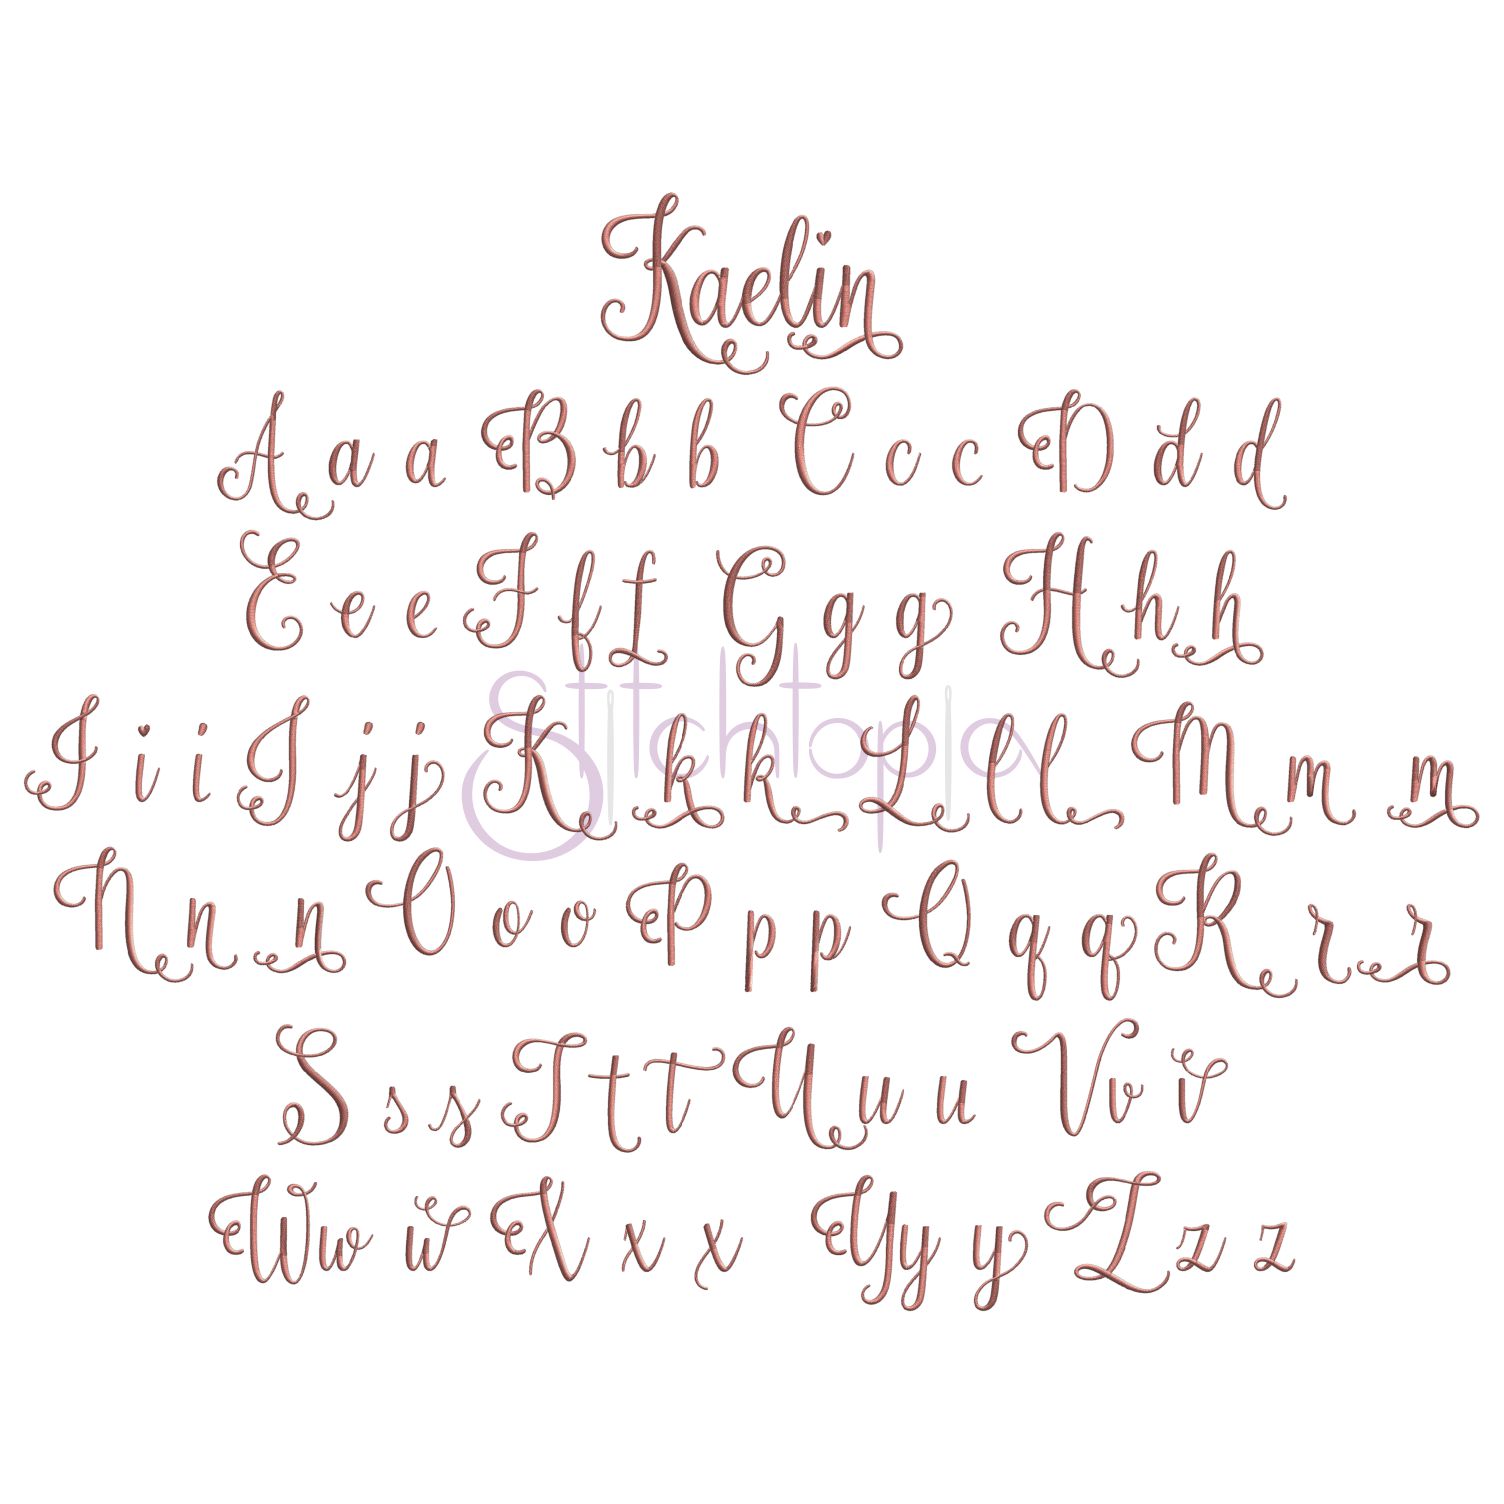 Kaelin
A a a B b b C c c D d d
E e e F f f G g g H h h
Stitchtopia
I i i J j j K k k L l l M m m
N n n O o o P p p Q q q R r r
S s s T t t U u u V v v
W w w X x x Y y y Z z z